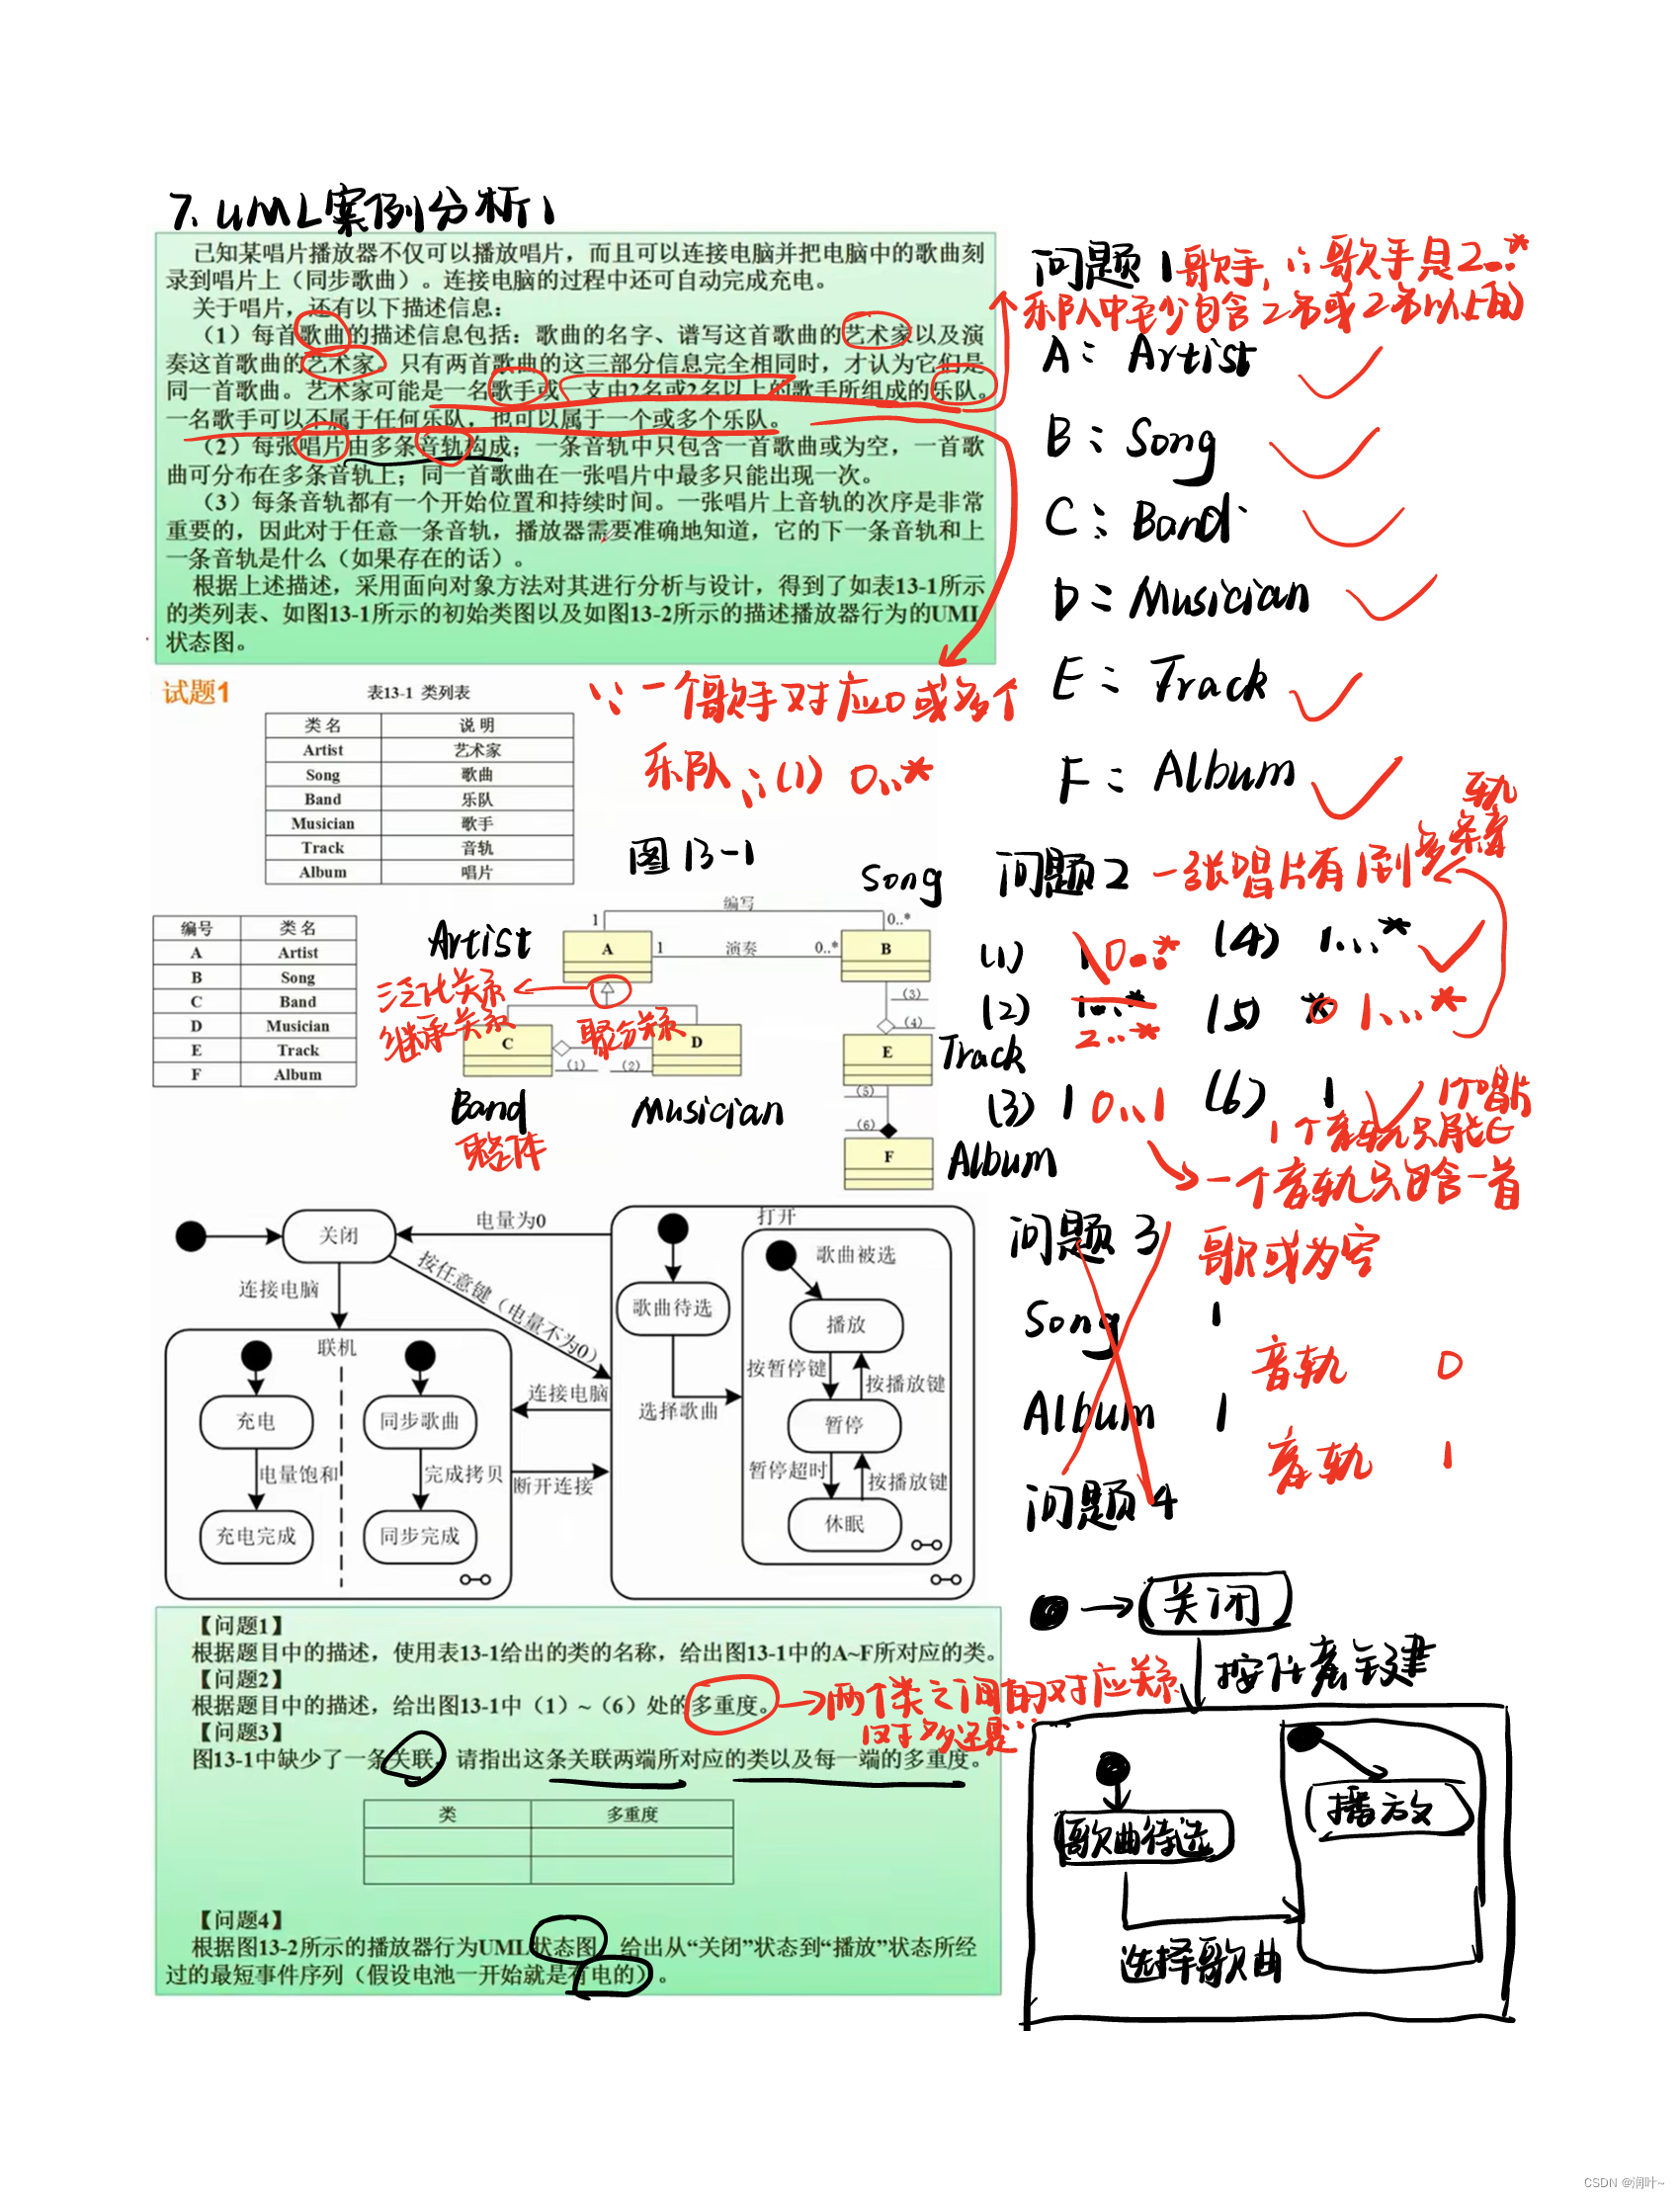 7. UML案例分析1
已知某唱片播放器不仅可以播放唱片，而且可以连接电脑并把电脑中的歌曲刻
录到唱片上（同步歌曲）。连接电脑的过程中还可自动完成充电。
关于唱片，还有以下描述信息：
（1）每首歌曲的描述信息包括：歌曲的名字、谱写这首歌曲的艺术家以及演
奏这首歌曲的艺术家。只有两首歌曲的这三部分信息完全相同时，才认为它们是
同一首歌曲。艺术家可能是一名歌手或一支由2名或2名以上的歌手所组成的乐队。
一名歌手可以不属于任何乐队，也可以属于一个或多个乐队。
（2）每张唱片由多条音轨构成；一条音轨中只包含一首歌曲或为空，一首歌
曲可分布在多条音轨上；同一首歌曲在一张唱片中最多只能出现一次。
（3）每条音轨都有一个开始位置和持续时间。一张唱片上音轨的次序是非常
重要的，因此对于任意一条音轨，播放器需要准确地知道，它的下一条音轨和上
一条音轨是什么（如果存在的话）。
根据上述描述，采用面向对象方法对其进行分析与设计，得到了如表13-1所示
的类列表、如图13-1所示的初始类图以及如图13-2所示的描述播放器行为的UML
状态图。
问题1 歌手，∴歌手是2..*
乐队中至少包含2名或2名以上的
A：Artist
B：Song
C：Band
D：Musician
E：Track
F：Album
试题1
表13-1 类列表
类 名 说 明
Artist 艺术家
Song 歌曲
Band 乐队
Musician 歌手
Track 音轨
Album 唱片
∵一个歌手对应0或多个
乐队 ∴(1) 0..*
图13-1
编号 类 名
A Artist
B Song
C Band
D Musician
E Track
F Album
Song
Artist
编写
1 0..*
A 1 演奏 0..* B
泛化关系
继承关系
聚合关系
(3)
(4)
C D E
(1) (2)
Track
(5)
(6)
Band
Musician
整体
F
Album
问题2 一张唱片有1到多条音轨
(1) 1 0..* (4) 1...*
(2) 1...* 2...* (5) * 0 1...*
(3) 1 0..1 (6) 1
1个音轨只能
1个唱片
一个音轨只包含一首
歌或为空
问题3
Song 1
音轨 0
Album 1
音轨 1
问题4
关闭
按任意键
歌曲待选
播放
选择歌曲
关闭
电量为0
打开
连接电脑
按任意键（电量不为0）
歌曲待选
歌曲被选
播放
联机
按暂停键
按播放键
连接电脑
选择歌曲
充电
同步歌曲
暂停
电量饱和
完成拷贝
断开连接
暂停超时
按播放键
充电完成
同步完成
休眠
【问题1】
根据题目中的描述，使用表13-1给出的类的名称，给出图13-1中的A~F所对应的类。
【问题2】
根据题目中的描述，给出图13-1中（1）~（6）处的多重度。
→两个类之间的对应关系
【问题3】
图13-1中缺少了一条关联，请指出这条关联两端所对应的类以及每一端的多重度。
类 多重度
【问题4】
根据图13-2所示的播放器行为UML状态图，给出从“关闭”状态到“播放”状态所经
过的最短事件序列（假设电池一开始就是有电的）。
CSDN @润叶~